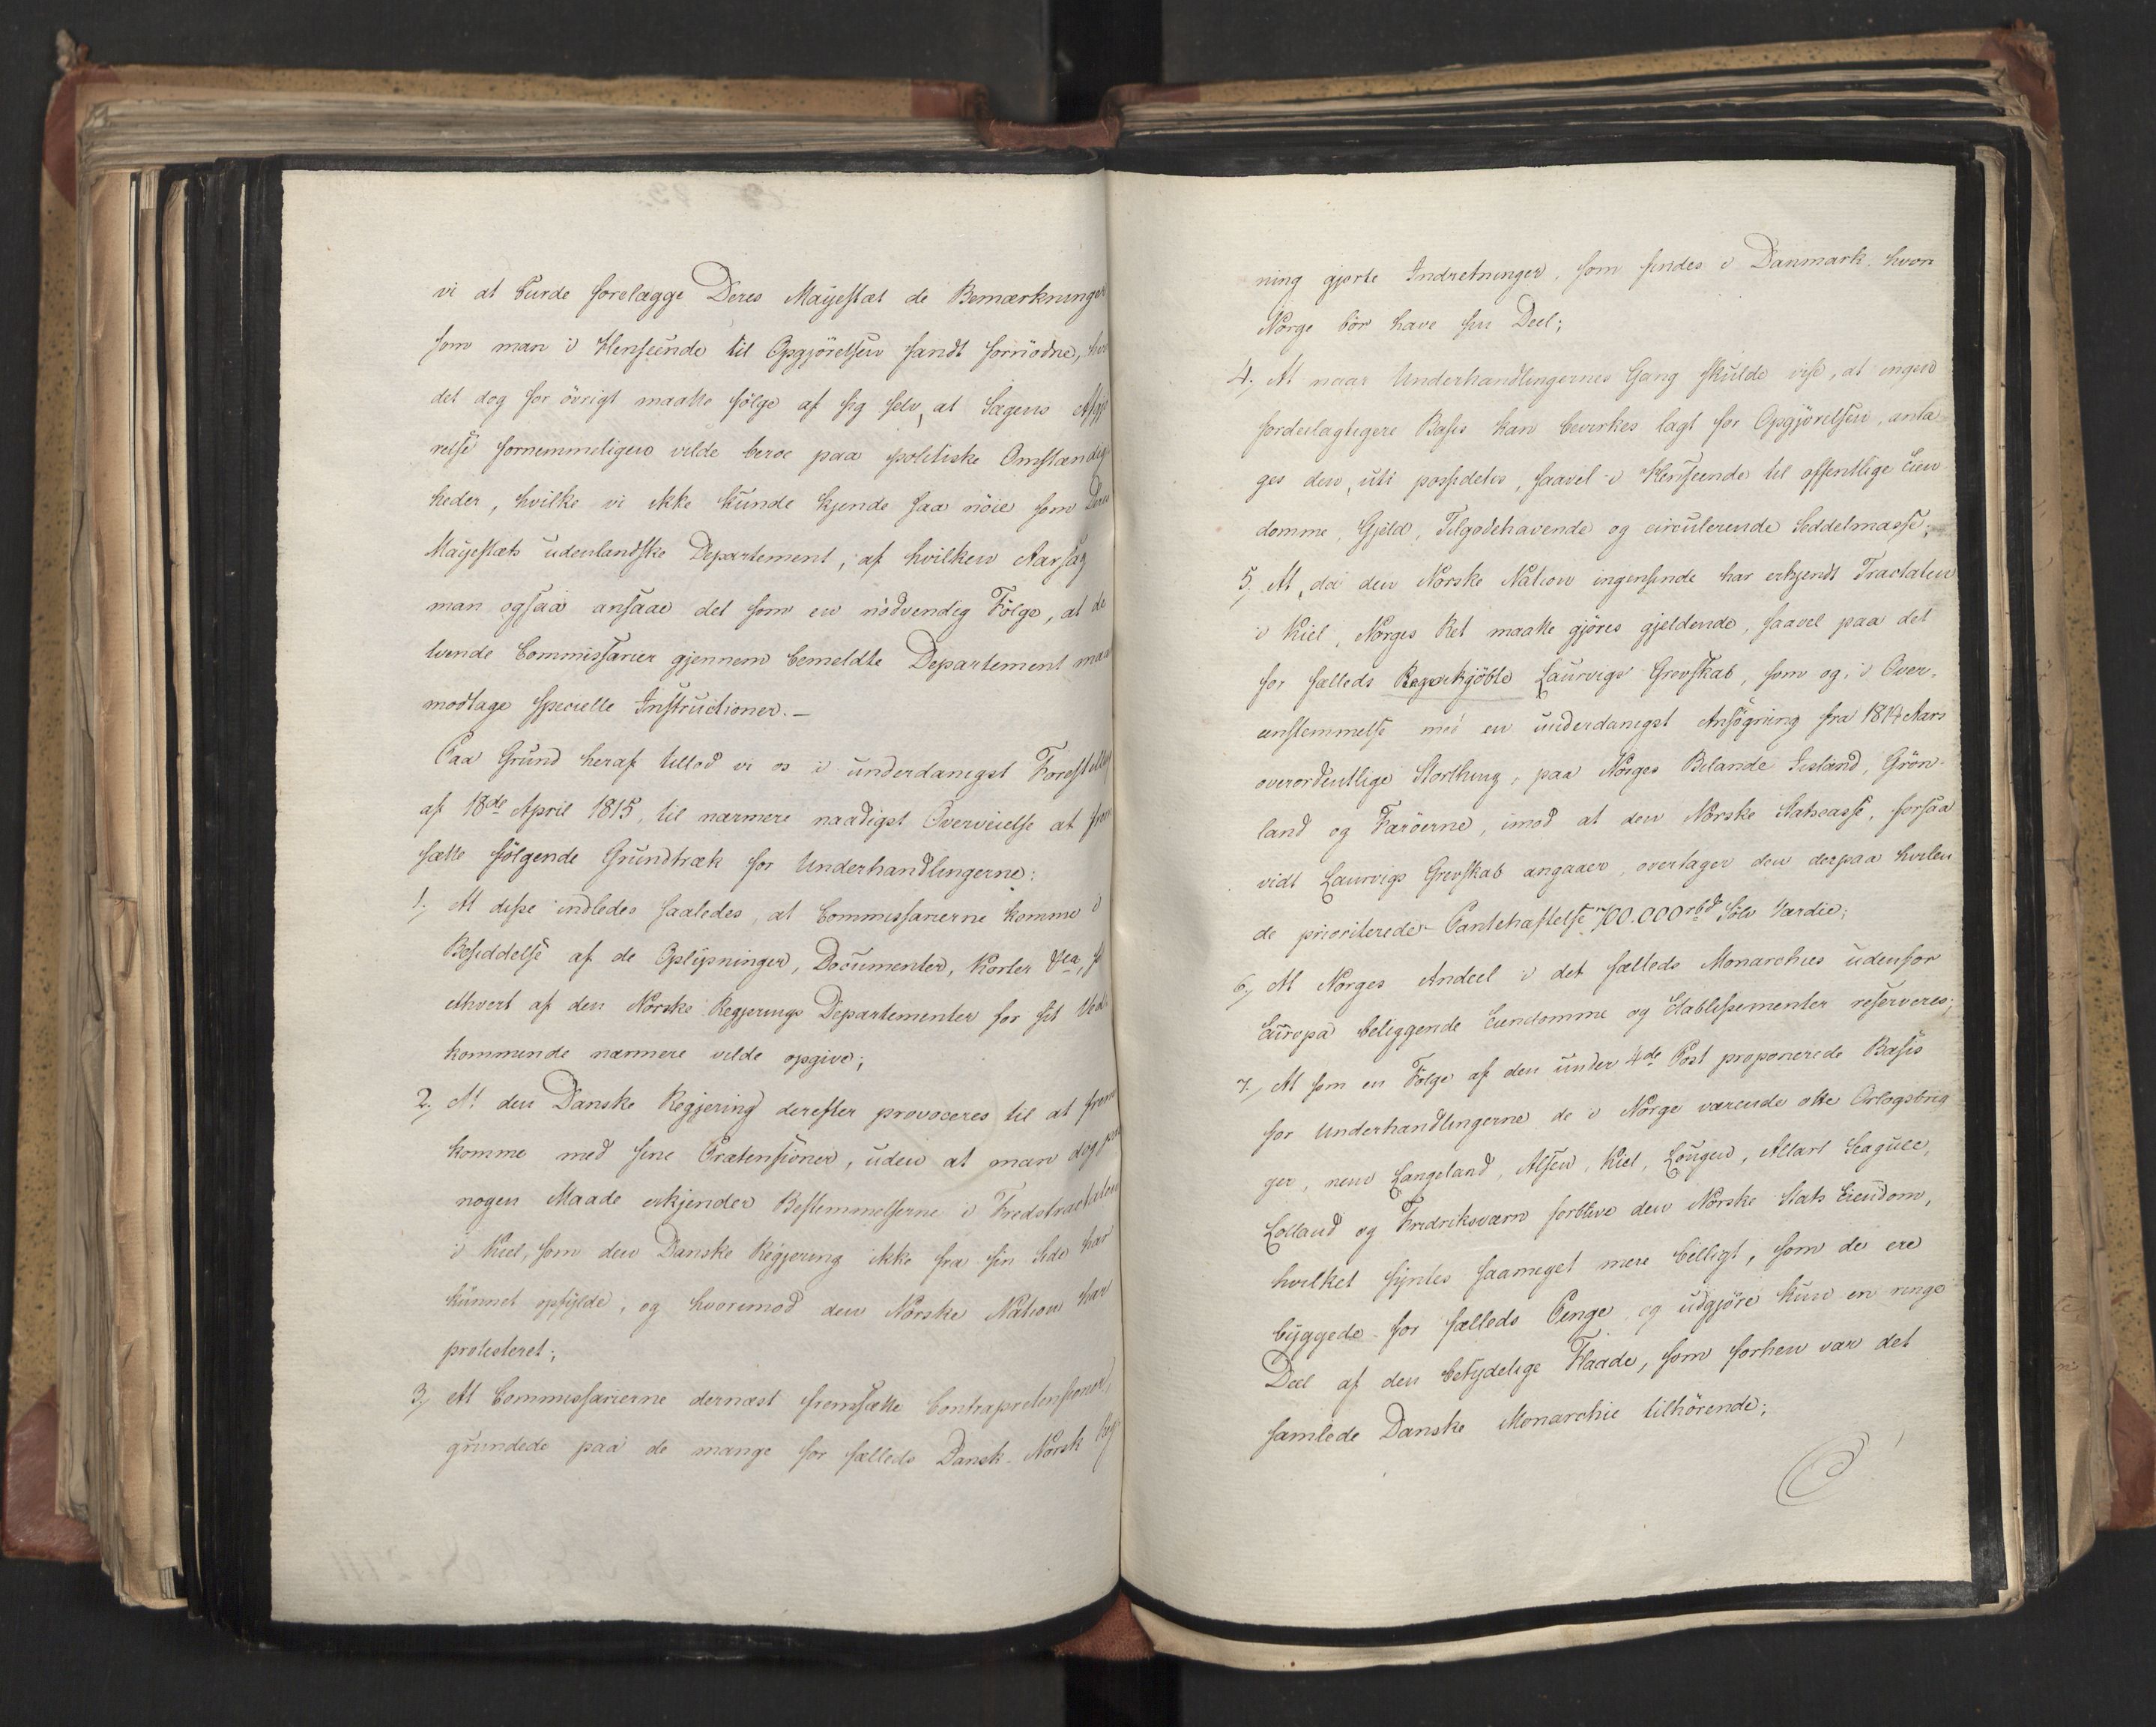 vi at burde forelægge Deres Mayestæt de Bemærkninger
som man i Henseende til Opgjörelsen fandt fornödne, hvor
det dog for övrigt maatte fölge af sig selv, at Sagens Afgjö
relse fornemmeligen vilde beroe paa politiske Omstændig
heder, hvilke vi ikke kunde kjende saa nöie som Deres
Mayestæts udenlandske Departement, af hvilken Aarsag
man ogsaa ansaae det som en nödvendig Fölge, at de
tvende Commissarier gjennem bemeldte Departement maa
modtage specielle Instructioner. –
Paa Grund heraf tillod vi os i underdanigst Forestilling
af 18de April 1815, til nærmere naadigst Overveielse at frem
sætte fölgende Grundtræk for Underhandlingerne:
1, At disse indledes saaledes, at Commissarierne komme i
Besiddelse af de Oplysninger, Documenter, Karter &ca,
ethvert af den Norske Regjerings Departementer for sit Ved
kommende nærmere vilde opgive;
2, At den Danske Regjering derefter provoceres til at frem
komme med sine Prætensioner, uden at man dog paa
nogen Maade erkjender Bestemmelserne i Fredstractaten
i Kiel, som den Danske Regjering ikke fra sin Side har
kunnet opfylde, og hvorimod den Norske Nation har
protesteret;
3, At Commissarierne dernæst fremsætte Contraprætensioner,
grundede paa de mange for fælleds Dansk-Norsk Reg
ning gjorte Indretninger, som findes i Danmark, hvori
Norge bör have sin Deel;
4, At naar Underhandlingernes Gang skulde vise, at ingen
fordeelagtigere Basis kan bevirkes lagt for Opgjörelsen, anta
ges den, uti possidetis, saavel i Henseende til offentlige Eien
domme, Gjeld, Tilgodehavende og circulerende Seddelmasse;
5, At, da den Norske Nation ingensinde har erkjendt Tractaten
i Kiel, Norges Ret maatte gjöres gjeldende, saavel paa det
for fælleds Regnkjöbte Laurvigs Grevskab, som og, i Over-
eenstemmelse med en underdanigst Ansögning fra 1814 Aars
overordentlige Storthing, paa Norges Bilande Iisland, Grön-
land og Færöerne, imod at den Norske Statscasse, forsaa
vidt Laurvigs Grevskab angaaer, overtager den derpaa hvilen
de prioriterede Pantehæftelse 700.000 rbd Sölv Værdie;
6, At Norges Andeel i det fælleds Monarchies udenfor
Europa beliggende Eiendomme og Etablissementer reserveres;
7, At som en Fölge af den under 4de Post proponerede Basis
for Underhandlingerne de i Norge værende otte Orlogsbrig
ger, nem Langeland, Alsen, Kiel, Lougen, Allart Seagull,
Lolland og Fredriksværn forblive den Norske Stats Eiendom,
hvilket syntes saameget mere billigt, som de ere
byggede for fælleds Penge, og udgjöre kun en ringe
Deel af den betydelige Flaade, som forhen var det
samlede Danske Monarchie tilhörende;